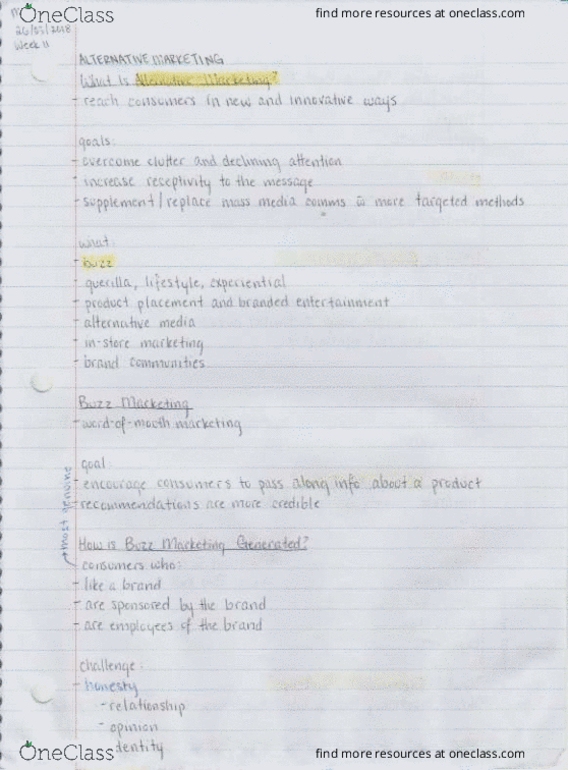 OneClass
find more resources at oneclass.com
Week 11
ALTERNATIVE MARKETING
What Is Alternative Marketing?
- reach consumers in new and innovative ways
goals:
- overcome clutter and declining attention
- increase receptivity to the message
- supplement/replace mass media comms w more targeted methods
what:
- buzz
- guerilla, lifestyle, experiential
- product placement and branded entertainment
- alternative media
- in-store marketing
- brand communities
Buzz Marketing
- word-of-mouth marketing
goal
- encourage consumers to pass along info about a product
- recommendations are more credible
most genuine
How is Buzz Marketing Generated?
consumers who:
- like a brand
- are sponsored by the brand
- are employees of the brand
challenge:
- honesty
- relationship
- opinion
dentity
OneClass
find more resources at oneclass.com